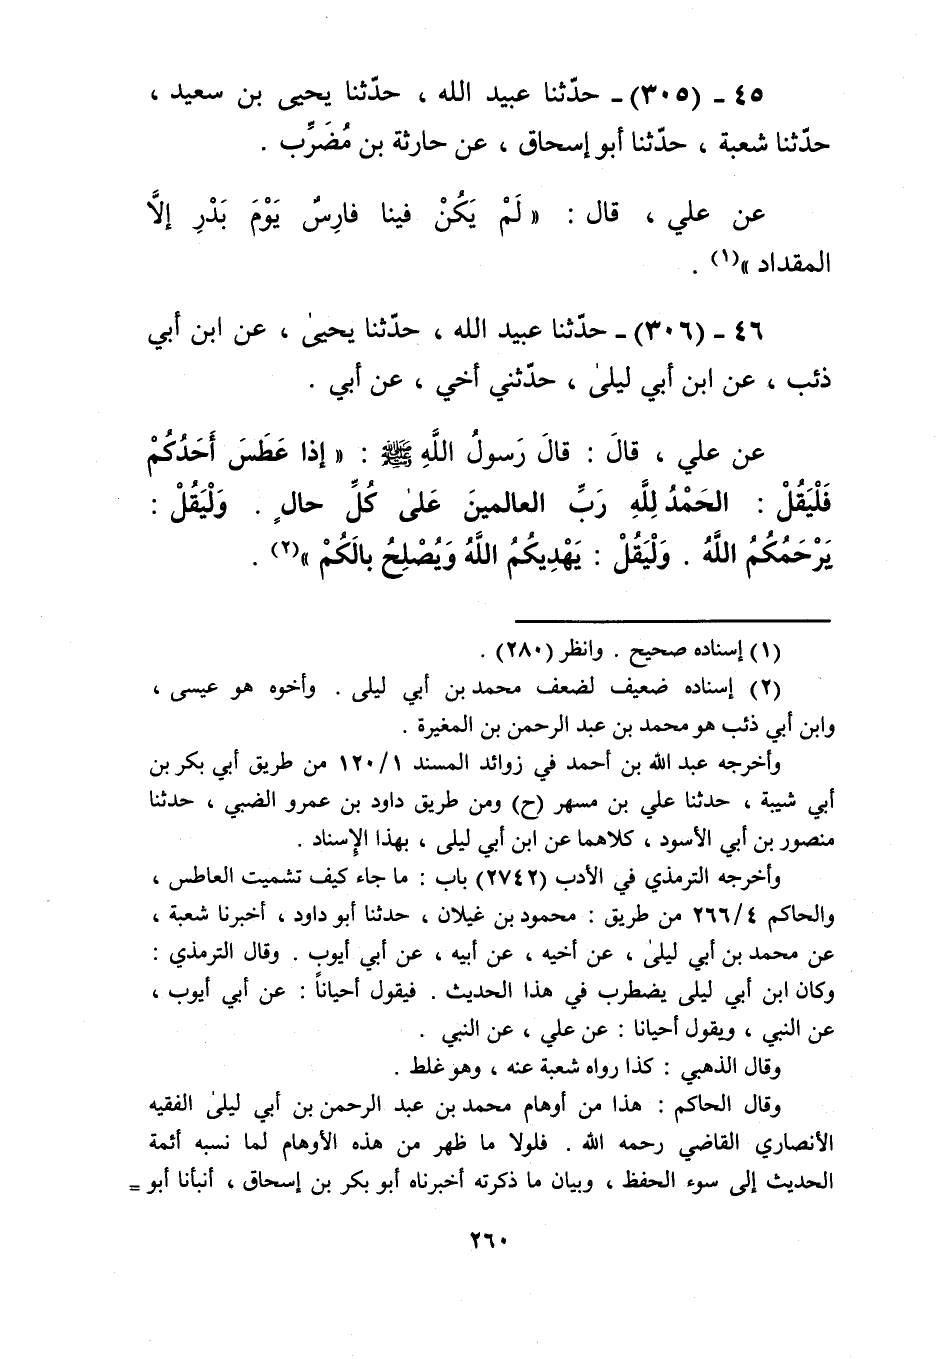 ٤٥ - (٣٠٥) - حدّثنا عبيد الله ، حدّثنا يحيى بن سعيد ،
حدّثنا شعبة ، حدّثنا أبو إسحاق ، عن حارثة بن مُضَرِّب .
عن علي ، قال : « لَمْ يَكُنْ فينا فارِسٌ يَوْمَ بَدْرِ إلاَّ
المقداد »(١) .
٤٦ - (٣٠٦) - حدّثنا عبيد الله ، حدّثنا يحيىٰ ، عن ابن أبي
ذئب ، عن ابن أبي ليلىٰ ، حدّثني أخي ، عن أبي .
عن علي ، قالَ : قالَ رَسولُ اللَّهِ ﷺ : « إذا عَطَسَ أَحَدُكُمْ
فَلْيَقُلْ : الحَمْدُ لِلَّهِ رَبِّ العالمينَ عَلىٰ كُلِّ حالٍ . وَلْيَقُلْ :
يَرْحَمُكُمُ اللَّهُ . وَلْيَقُلْ : يَهْدِيكُمُ اللَّهُ وَيُصْلِحُ بالَكُمْ »(٢) .
(١) إسناده صحيح . وانظر (٢٨٠) .
(٢) إسناده ضعيف لضعف محمد بن أبي ليلى . وأخوه هو عيسى ،
وابن أبي ذئب هو محمد بن عبد الرحمن بن المغيرة .
وأخرجه عبد الله بن أحمد في زوائد المسند ١٢٠/١ من طريق أبي بكر بن
أبي شيبة ، حدثنا علي بن مسهر (ح) ومن طريق داود بن عمرو الضبي ، حدثنا
منصور بن أبي الأسود ، كلاهما عن ابن أبي ليلى ، بهذا الإسناد .
وأخرجه الترمذي في الأدب (٢٧٤٢) باب : ما جاء كيف تشميت العاطس ،
والحاكم ٢٦٦/٤ من طريق : محمود بن غيلان ، حدثنا أبو داود ، أخبرنا شعبة ،
عن محمد بن أبي ليلىٰ ، عن أخيه ، عن أبيه ، عن أبي أيوب . وقال الترمذي :
وكان ابن أبي ليلى يضطرب في هذا الحديث . فيقول أحياناً : عن أبي أيوب ،
عن النبي ، ويقول أحيانا : عن علي ، عن النبي .
وقال الذهبي : كذا رواه شعبة عنه ، وهو غلط .
وقال الحاكم : هذا من أوهام محمد بن عبد الرحمن بن أبي ليلىٰ الفقيه
الأنصاري القاضي رحمه الله . فلولا ما ظهر من هذه الأوهام لما نسبه أئمة
الحديث إلى سوء الحفظ ، وبيان ما ذكرته أخبرناه أبو بكر بن إسحاق ، أنبأنا أبو =
٢٦٠